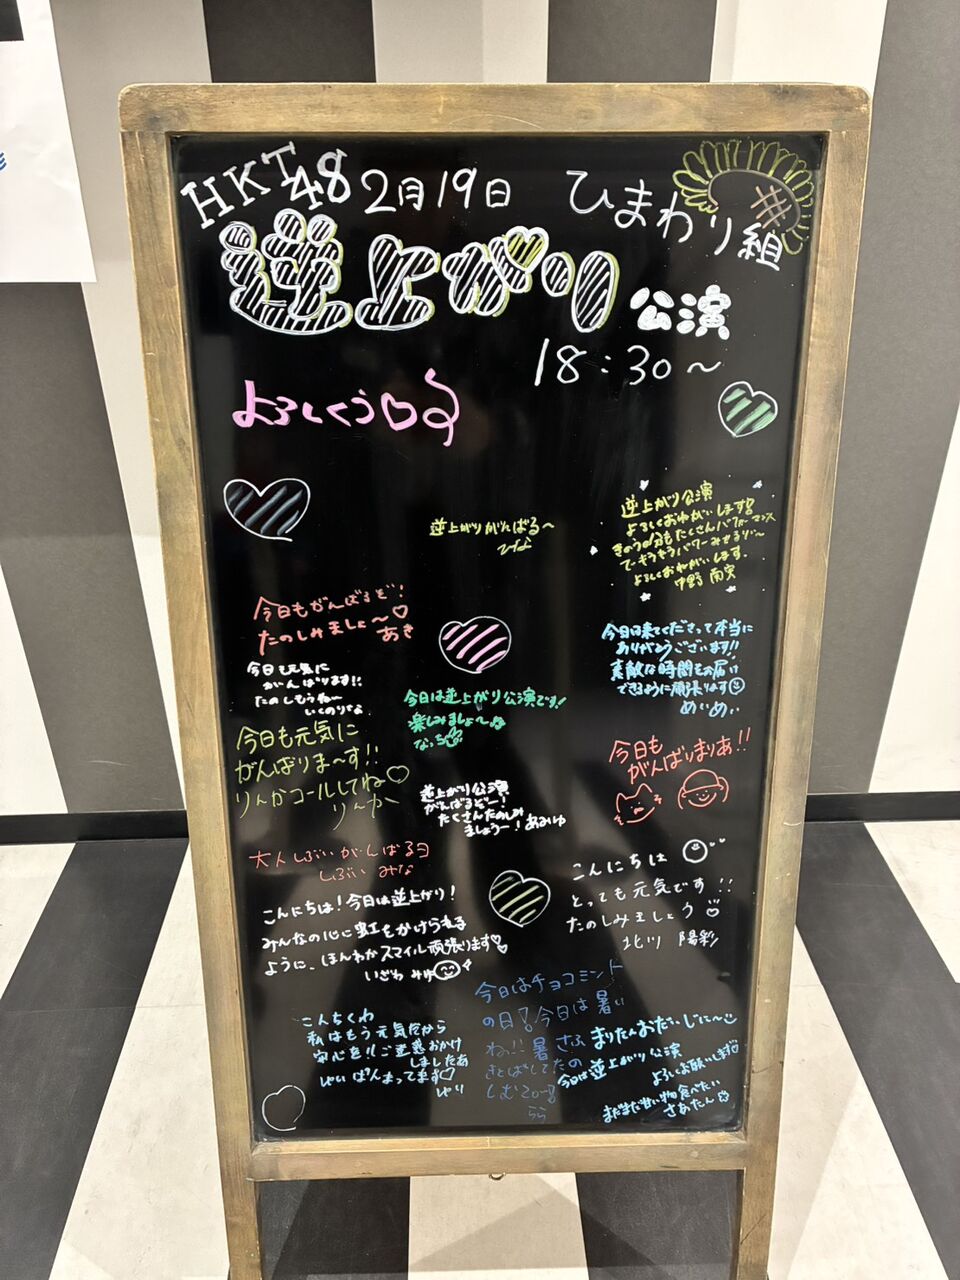 HKT48 2月19日 ひまわり組
逆上がり 公演
18:30〜
よろしくう♡
逆上がりがんばる〜
ひな
逆上がり公演
よろしくおねがいします
よろしくおねがいします。
今日もがんばるぞ！
たのしみましょ〜♡
あき
今日も元気に
がんばります!!
たのしもうね〜
いくのりな
今日は来てくださって本当に
ありがとうございます!!
素敵な時間をお届け
できるように頑張ります☺
めぃめぃ
今日は逆上がり公演です！
楽しみましょ〜
なっち
今日も元気に
がんばりま〜す!!
りんかコールしてね♡
りんか
今日も
がんばりまりあ!!
逆上がり公演
がんばるぞー！
たくさんたのしみ
ましょうー！あみゆ
大人しぶいがんばるヨ
しぶい みな
こんにちは
とっても元気です!!
たのしみましょう
北川 陽彩
こんにちは！今日は逆上がり！
みんなの心に虹をかけられる
ように、ほんわかスマイル頑張ります♡
いざわ みゆ
こんちくわ
私はもう元気だから
安心を！ご迷惑おかけ
しましたあ
ゆい
今日はチョコミント
の日！今日は暑い
ね!! 暑さふ
きとばしてたの
しむZo〜
らら
まりたんおだいじに〜
今日は逆上がり公演
よろしくお願いします
まだまだ甘い物食べたい
さあたん